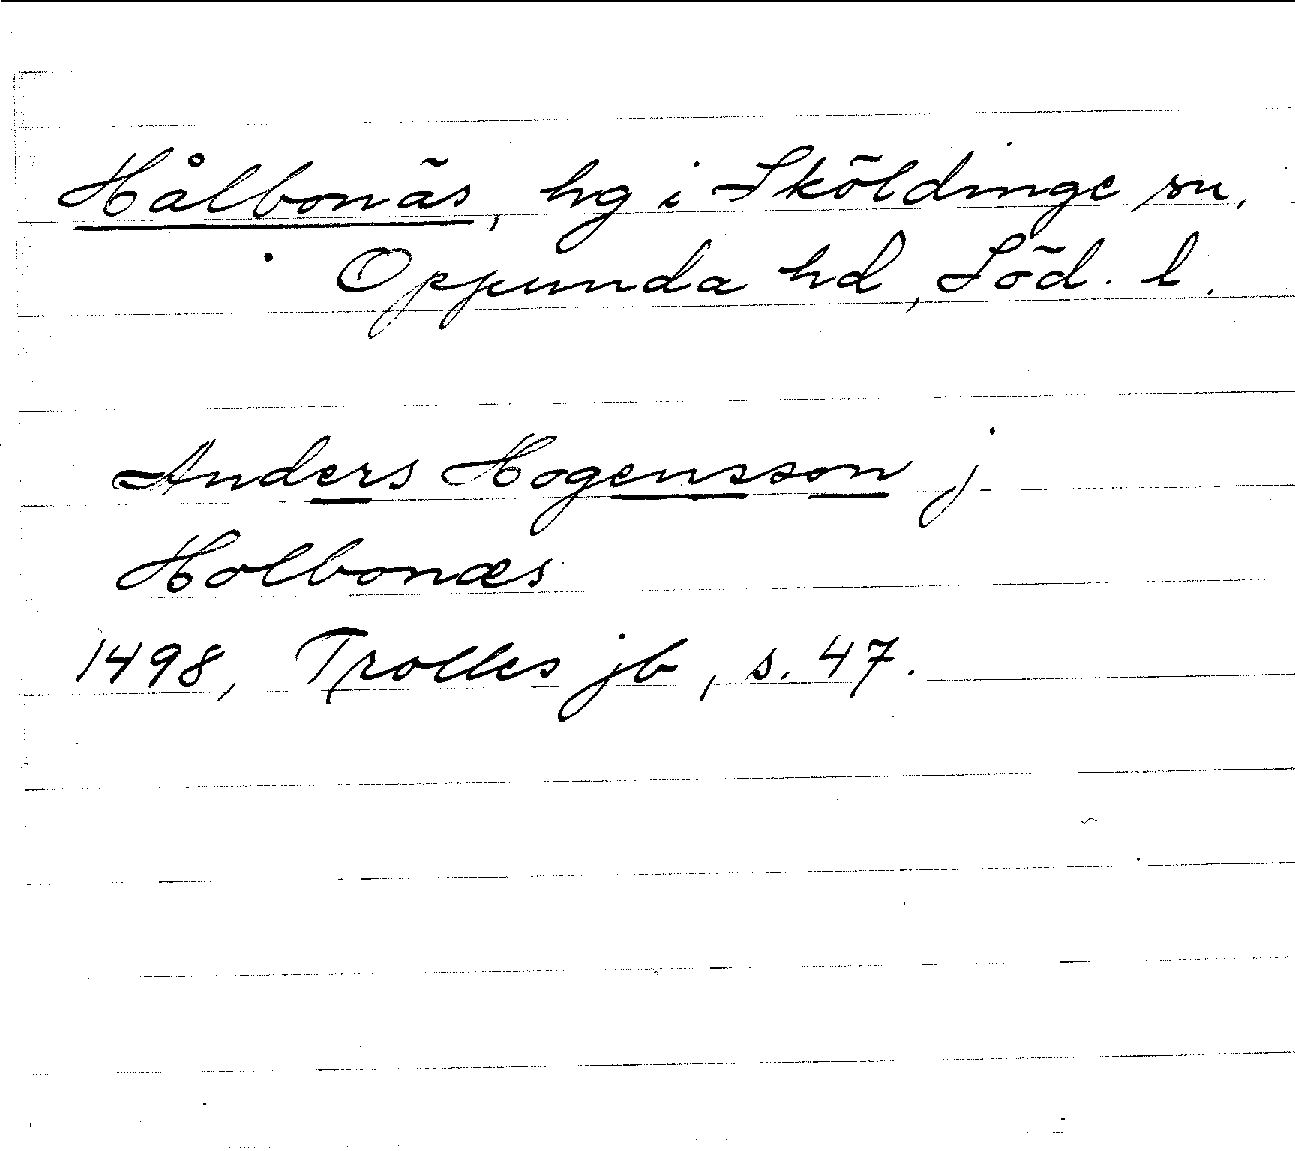 Hålbonäs, hg i Sköldinge sn,
Oppunda hd, Söd. l.
Anders Hogensson j
Holbonæs
1498, Trolles jb, s. 47.